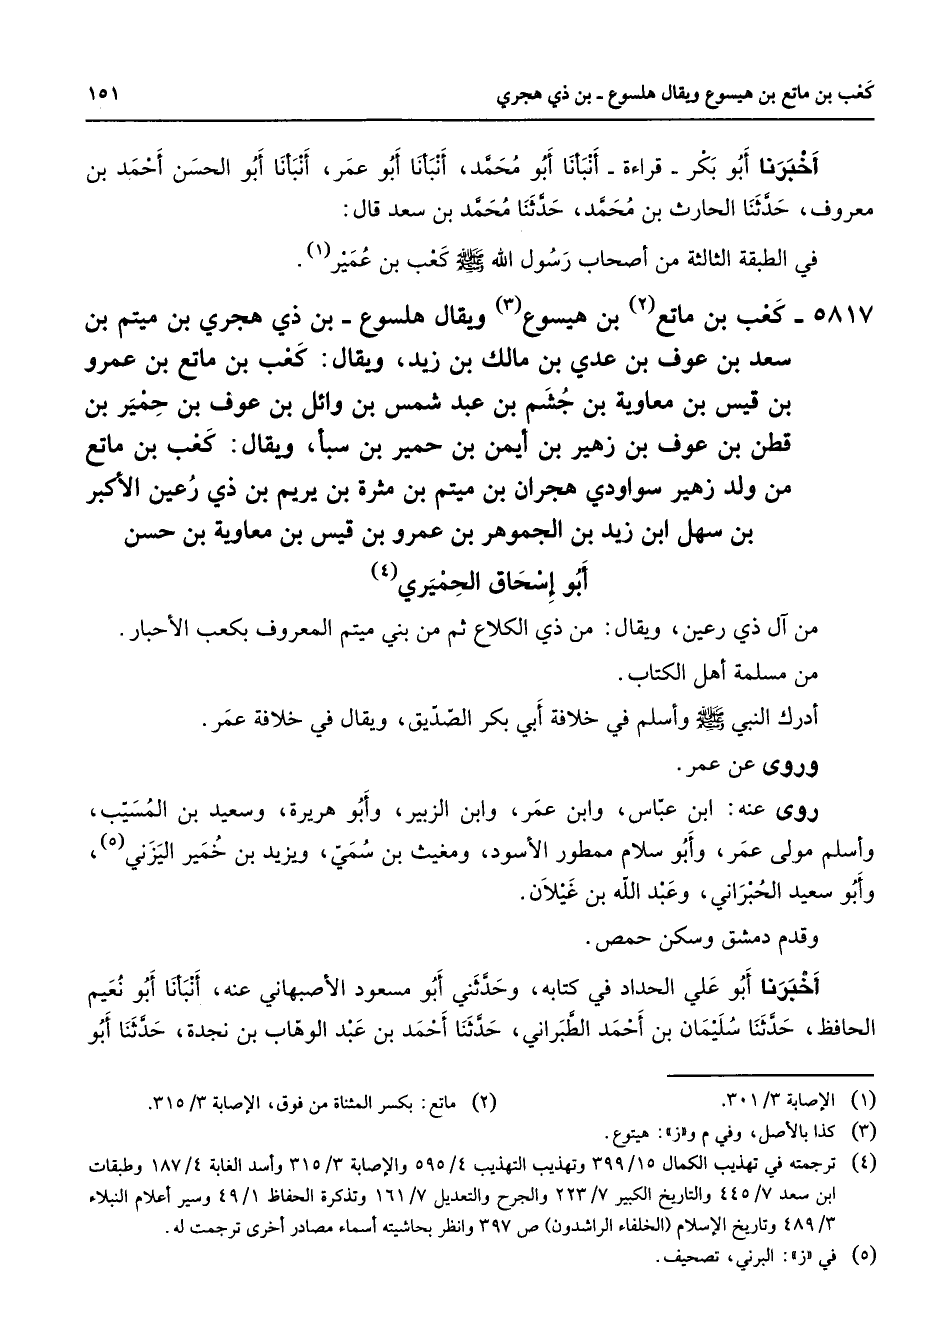 كَعْب بن ماتع بن هيسوع ويقال هلسوع ـ بن ذي هجري ١٥١
أَخْبَرَنا أَبُو بَكْر ـ قراءة ـ أَنْبَأنَا أَبُو مُحَمَّد، أَنْبَأنَا أَبُو عمَر، أَنْبَأنَا أَبُو الحسَن أَحْمَد بن
معروف، حَدَّثَنَا الحارث بن مُحَمَّد، حَدَّثَنَا مُحَمَّد بن سعد قال:
في الطبقة الثالثة من أصحاب رَسُول الله ﷺ كَعْب بن عُمَيْر(١).
٥٨١٧ ـ كَعْب بن ماتع(٢) بن هيسوع(٣) ويقال هلسوع ـ بن ذي هجري بن ميتم بن
سعد بن عوف بن عدي بن مالك بن زيد، ويقال: كَعْب بن ماتع بن عمرو
بن قيس بن معاوية بن جُشَم بن عبد شمس بن وائل بن عوف بن حِمْيَر بن
قطن بن عوف بن زهير بن أيمن بن حمير بن سبأ، ويقال: كَعْب بن ماتع
من ولد زهير سواودي هجران بن ميتم بن مثرة بن يريم بن ذي رُعين الأكبر
بن سهل ابن زيد بن الجموهر بن عمرو بن قيس بن معاوية بن حسن
أَبُو إِسْحَاق الحِمْيَري(٤)
من آل ذي رعين، ويقال: من ذي الكلاع ثم من بني ميتم المعروف بكعب الأحبار.
من مسلمة أهل الكتاب.
أدرك النبي ﷺ وأسلم في خلافة أَبي بكر الصّدّيق، ويقال في خلافة عمَر.
وروى عن عمر.
روى عنه: ابن عبّاس، وابن عمَر، وابن الزبير، وأَبُو هريرة، وسعيد بن المُسَيّب،
وأسلم مولى عمَر، وأَبُو سلام ممطور الأسود، ومغيث بن سُمَيّ، ويزيد بن خُمَير اليَزَني(٥)،
وأَبُو سعيد الحُبْرَاني، وعَبْد الله بن غَيْلاَن.
وقدم دمشق وسكن حمص.
أَخْبَرَنا أَبُو عَلي الحداد في كتابه، وحَدَّثَني أَبُو مسعود الأصبهاني عنه، أَنْبَأنَا أَبُو نُعَيم
الحافظ، حَدَّثَنَا سُلَيْمَان بن أَحْمَد الطَّبَراني، حَدَّثَنَا أَحْمَد بن عَبْد الوهاب بن نجدة، حَدَّثَنَا أَبُو
(١) الإصابة ٣/ ٣٠١. (٢) ماتع: بكسر المثناة من فوق، الإصابة ٣/ ٣١٥.
(٣) كذا بالأصل، وفي م و«ز»: هيتوع.
(٤) ترجمته في تهذيب الكمال ١٥/ ٣٩٩ وتهذيب التهذيب ٤/ ٥٩٥ والإصابة ٣/ ٣١٥ وأسد الغابة ٤/ ١٨٧ وطبقات
ابن سعد ٧/ ٤٤٥ والتاريخ الكبير ٧/ ٢٢٣ والجرح والتعديل ٧/ ١٦١ وتذكرة الحفاظ ١/ ٤٩ وسير أعلام النبلاء
٣/ ٤٨٩ وتاريخ الإسلام (الخلفاء الراشدون) ص ٣٩٧ وانظر بحاشيته أسماء مصادر أخرى ترجمت له.
(٥) في «ز»: البرني، تصحيف.